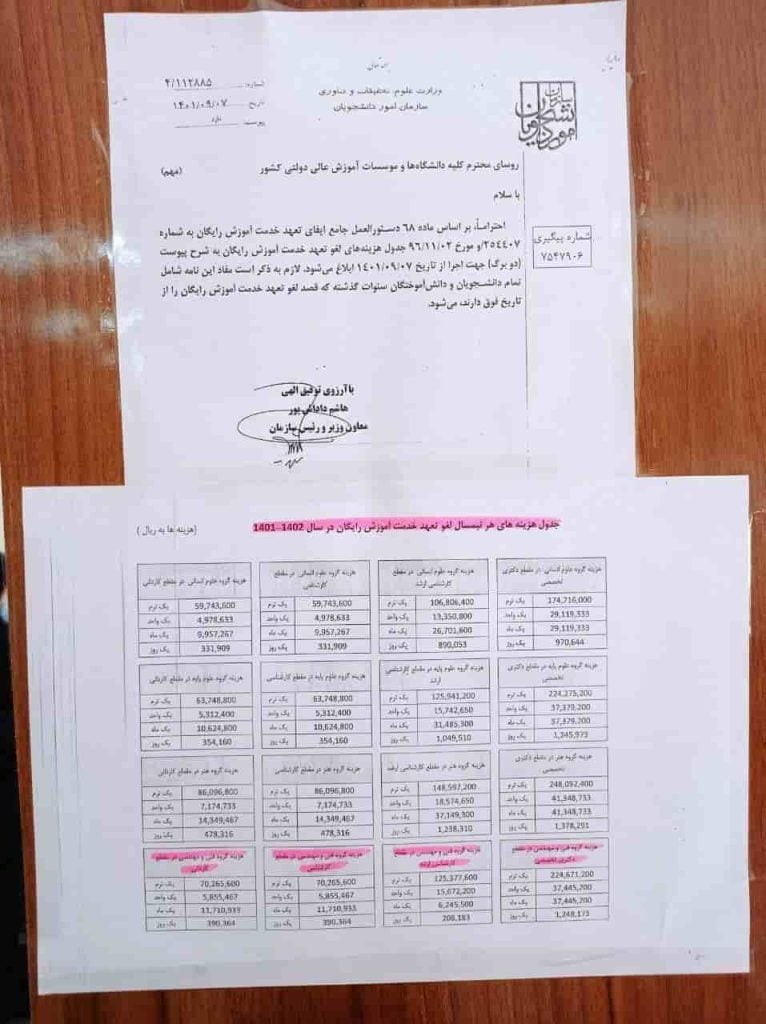 شماره: ۴/۱۱۲۸۸۵
تاریخ: ۱۴۰۱/۰۹/۰۷
پیوست: دارد
وزارت علوم، تحقیقات و فناوری
سازمان امور دانشجویان
سازمان امور دانشجویان
روسای محترم کلیه دانشگاه‌ها و موسسات آموزش عالی دولتی کشور (مهم)
با سلام
احتراماً، بر اساس ماده ۶۸ دستورالعمل جامع ایفای تعهد خدمت آموزش رایگان به شماره
۲۵۴۴۰۷/و مورخ ۹۶/۱۱/۰۲ جدول هزینه‌های لغو تعهد خدمت آموزش رایگان به شرح پیوست
(دو برگ) جهت اجرا از تاریخ ۱۴۰۱/۰۹/۰۷ ابلاغ می‌شود. لازم به ذکر است مفاد این نامه شامل
تمام دانشجویان و دانش‌آموختگان سنوات گذشته که قصد لغو تعهد خدمت آموزش رایگان را از
تاریخ فوق دارند، می‌شود.
شماره پیگیری
۷۵۴۷۹۰۶
با آرزوی توفیق الهی
هاشم داداش پور
معاون وزیر و رئیس سازمان
جدول هزینه های هر نیمسال لغو تعهد خدمت آموزش رایگان در سال 1402-1401 (هزینه ها به ریال)
هزینه گروه علوم انسانی در مقطع دکتری
تخصصی
یک ترم 174,716,000
یک واحد 29,119,333
یک ماه 29,119,333
یک روز 970,644
هزینه گروه علوم انسانی در مقطع
کارشناسی ارشد
یک ترم 106,806,400
یک واحد 13,350,800
یک ماه 26,701,600
یک روز 890,053
هزینه گروه علوم انسانی در مقطع
کارشناسی
یک ترم 59,743,600
یک واحد 4,978,633
یک ماه 9,957,267
یک روز 331,909
هزینه گروه علوم انسانی در مقطع کاردانی
یک ترم 59,743,600
یک واحد 4,978,633
یک ماه 9,957,267
یک روز 331,909
هزینه گروه علوم پایه در مقطع دکتری
تخصصی
یک ترم 224,275,200
یک واحد 37,379,200
یک ماه 37,379,200
یک روز 1,245,973
هزینه گروه علوم پایه در مقطع کارشناسی
ارشد
یک ترم 125,941,200
یک واحد 15,742,650
یک ماه 31,485,300
یک روز 1,049,510
هزینه گروه علوم پایه در مقطع کارشناسی
یک ترم 63,748,800
یک واحد 5,312,400
یک ماه 10,624,800
یک روز 354,160
هزینه گروه علوم پایه در مقطع کاردانی
یک ترم 63,748,800
یک واحد 5,312,400
یک ماه 10,624,800
یک روز 354,160
هزینه گروه هنر در مقطع دکتری
تخصصی
یک ترم 248,092,400
یک واحد 41,348,733
یک ماه 41,348,733
یک روز 1,378,291
هزینه گروه هنر در مقطع کارشناسی ارشد
یک ترم 148,597,200
یک واحد 18,574,650
یک ماه 37,149,300
یک روز 1,238,310
هزینه گروه هنر در مقطع کارشناسی
یک ترم 86,096,800
یک واحد 7,174,733
یک ماه 14,349,467
یک روز 478,316
هزینه گروه هنر در مقطع کاردانی
یک ترم 86,096,800
یک واحد 7,174,733
یک ماه 14,349,467
یک روز 478,316
هزینه گروه فنی و مهندسی در مقطع
دکتری تخصصی
یک ترم 224,671,200
یک واحد 37,445,200
یک ماه 37,445,200
یک روز 1,248,173
هزینه گروه فنی و مهندسی در مقطع
کارشناسی ارشد
یک ترم 125,377,600
یک واحد 15,672,200
یک ماه 6,245,500
یک روز 208,183
هزینه گروه فنی و مهندسی در مقطع
کارشناسی
یک ترم 70,265,600
یک واحد 5,855,467
یک ماه 11,710,933
یک روز 390,364
هزینه گروه فنی و مهندسی در مقطع
کاردانی
یک ترم 70,265,600
یک واحد 5,855,467
یک ماه 11,710,933
یک روز 390,364